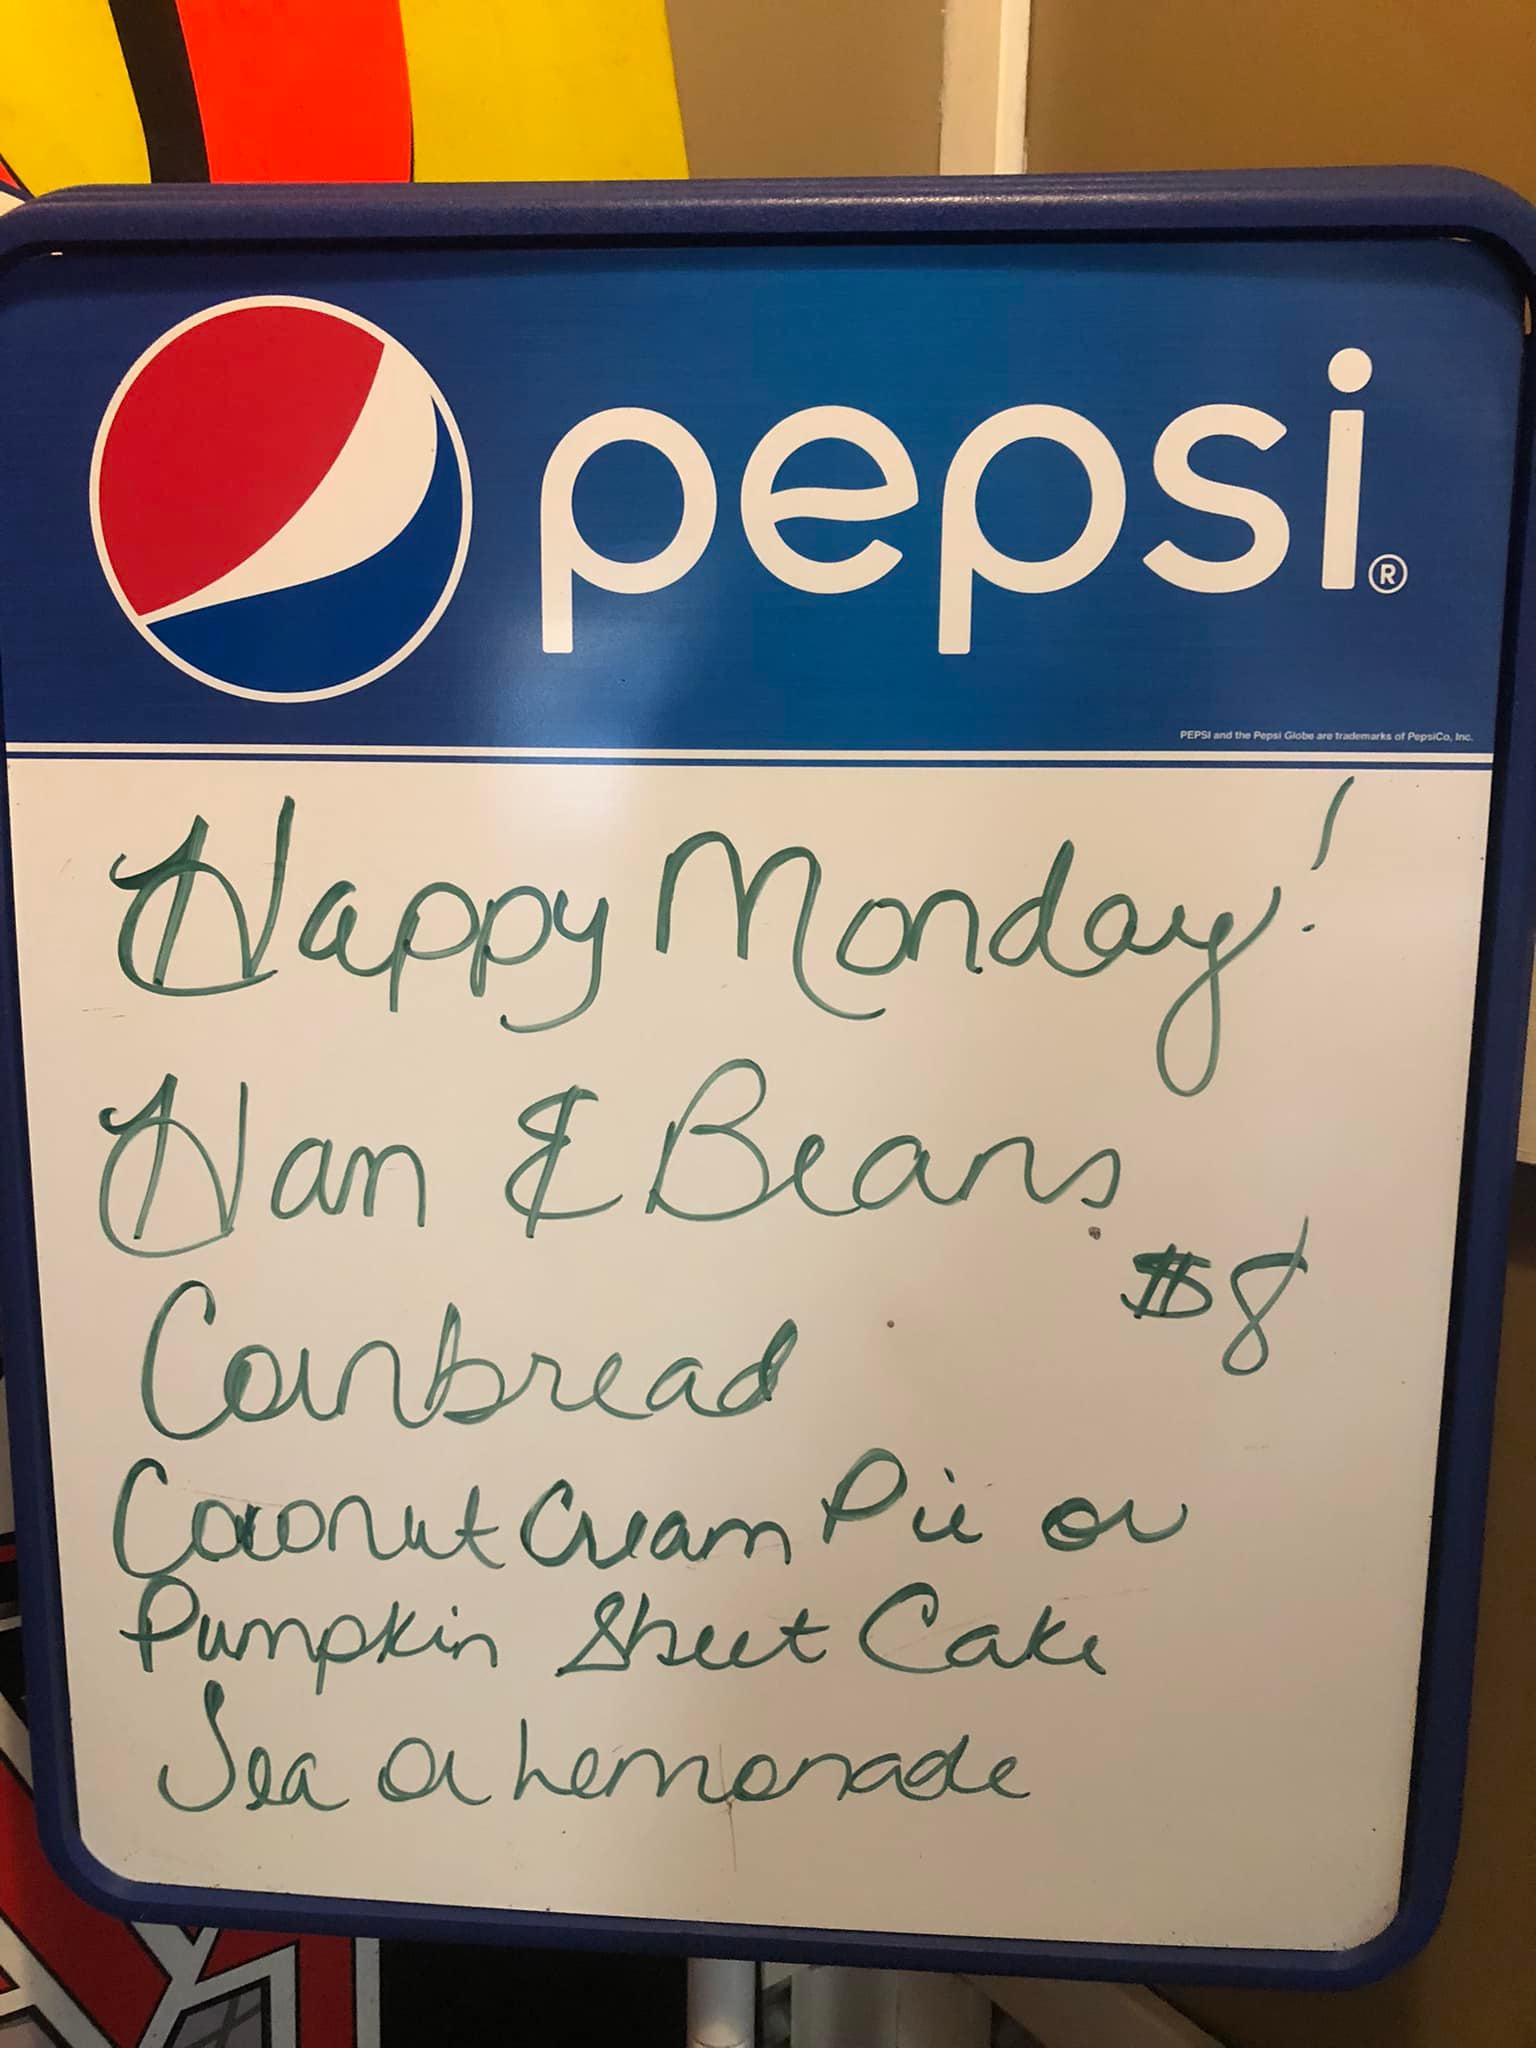 pepsi®
PEPSI and the Pepsi Globe are trademarks of PepsiCo, Inc.
Happy Monday!
Ham & Beans
$8
Cornbread
Coconut Cream Pie or
Pumpkin Sheet Cake
Tea or Lemonade